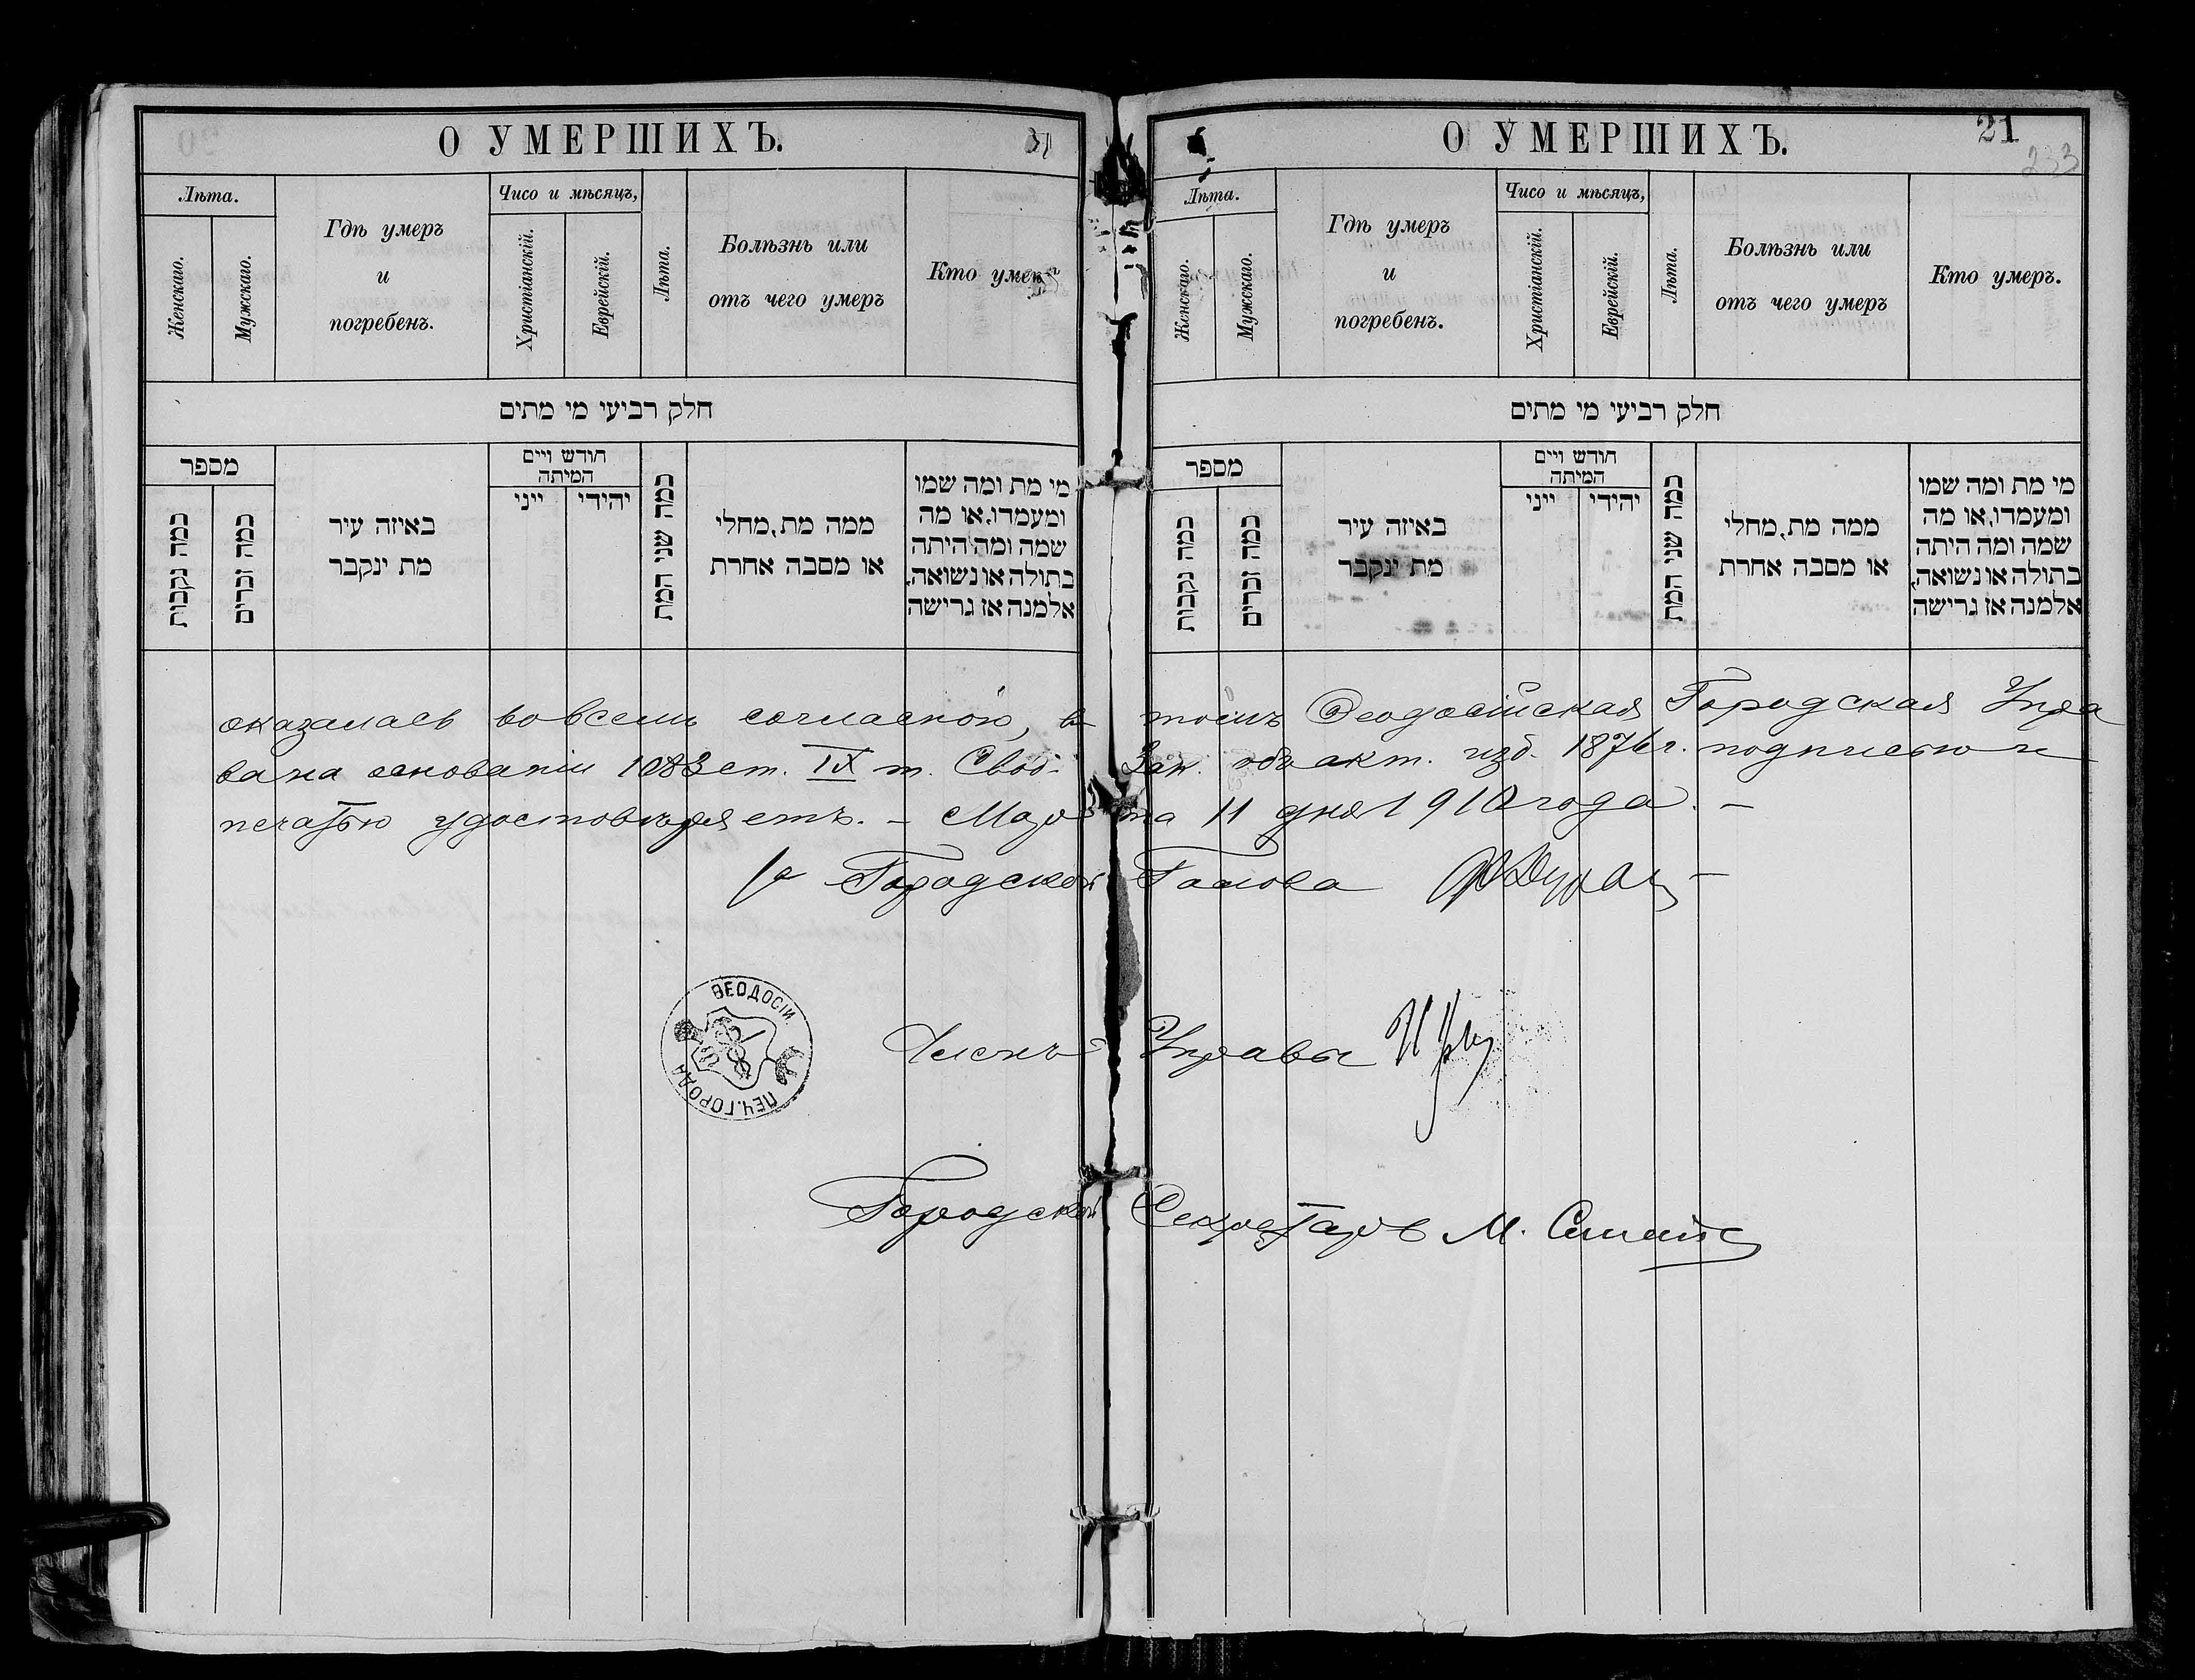 О УМЕРШИХЪ.
Лѣта.
Женскаго.
Мужскаго.
Гдѣ умеръ
и
погребенъ.
Чисо и мѣсяцъ,
Христіанскій.
Еврейскій.
Лѣта.
Болѣзнь или
отъ чего умеръ
Кто умеръ
חלק רביעי מי מתים
מספר
כמה נקבות
כמה זכרים
באיזה עיר
מת ינקבר
חודש ויים
המיתה
ייני
יהידי
כמה שני המת
ממה מת, מחלי
או מסבה אחרת
מי מת ומה שמו
ומעמדו, או מה
שמה ומה היתה
בתולה או נשואה,
אלמנה אז גרישה
О УМЕРШИХЪ.
21
233
Лѣта.
Женскаго.
Мужскаго.
Гдѣ умеръ
и
погребенъ.
Чисо и мѣсяцъ,
Христіанскій.
Еврейскій.
Лѣта.
Болѣзнь или
отъ чего умеръ
Кто умеръ.
חלק רביעי מי מתים
מספר
כמה נקבות
כמה זכרים
באיזה עיר
מת ינקבר
חודש ויים
המיתה
ייני
יהידי
כמה שני המת
ממה מת, מחלי
או מסבה אחרת
מי מת ומה שמו
ומעמדו, או מה
שמה ומה היתה
בתולה או נשואה,
אלמנה אז גרישה
оказалась во всемъ согласной, в томъ Ѳеодосійская Городская Упра
ва на основаніи 1083 ст. IX т. Свод. Зак. объ акт. изд. 1876 г. подписью и
печатью удостовѣряетъ. – Марта 11 дня 1910 года. –
Городской Голова
ѲЕОДОСІИ
ПЕЧ. ГОРОДА
Членъ Управы
Городской Секретарь М.